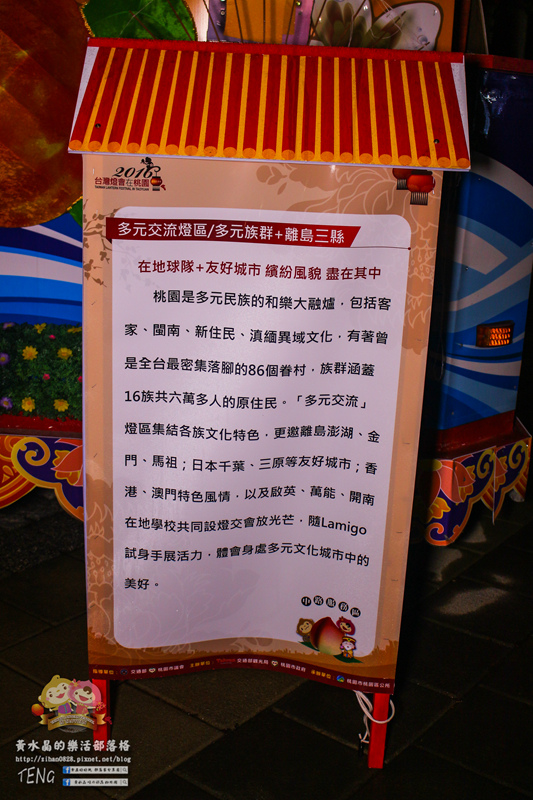 2016
台灣燈會在桃園
TAIWAN LANTERN FESTIVAL IN TAOYUAN
多元交流燈區/多元族群+離島三縣
在地球隊+友好城市 繽紛風貌 盡在其中
桃園是多元民族的和樂大融爐，包括客
家、閩南、新住民、滇緬異域文化，有著曾
是全台最密集落腳的86個眷村，族群涵蓋
16族共六萬多人的原住民。「多元交流」
燈區集結各族文化特色，更邀離島澎湖、金
門、馬祖；日本千葉、三原等友好城市；香
港、澳門特色風情，以及啟英、萬能、開南
在地學校共同設燈交會放光芒，隨Lamigo
試身手展活力，體會身處多元文化城市中的
美好。
中路服務區
指導單位 交通部 桃園市議會 主辦單位 交通部觀光局 桃園市政府 承辦單位 桃園市桃園區公所
黃水晶的樂活部落格
http://zihan0828.pixnet.net/blog
TENG